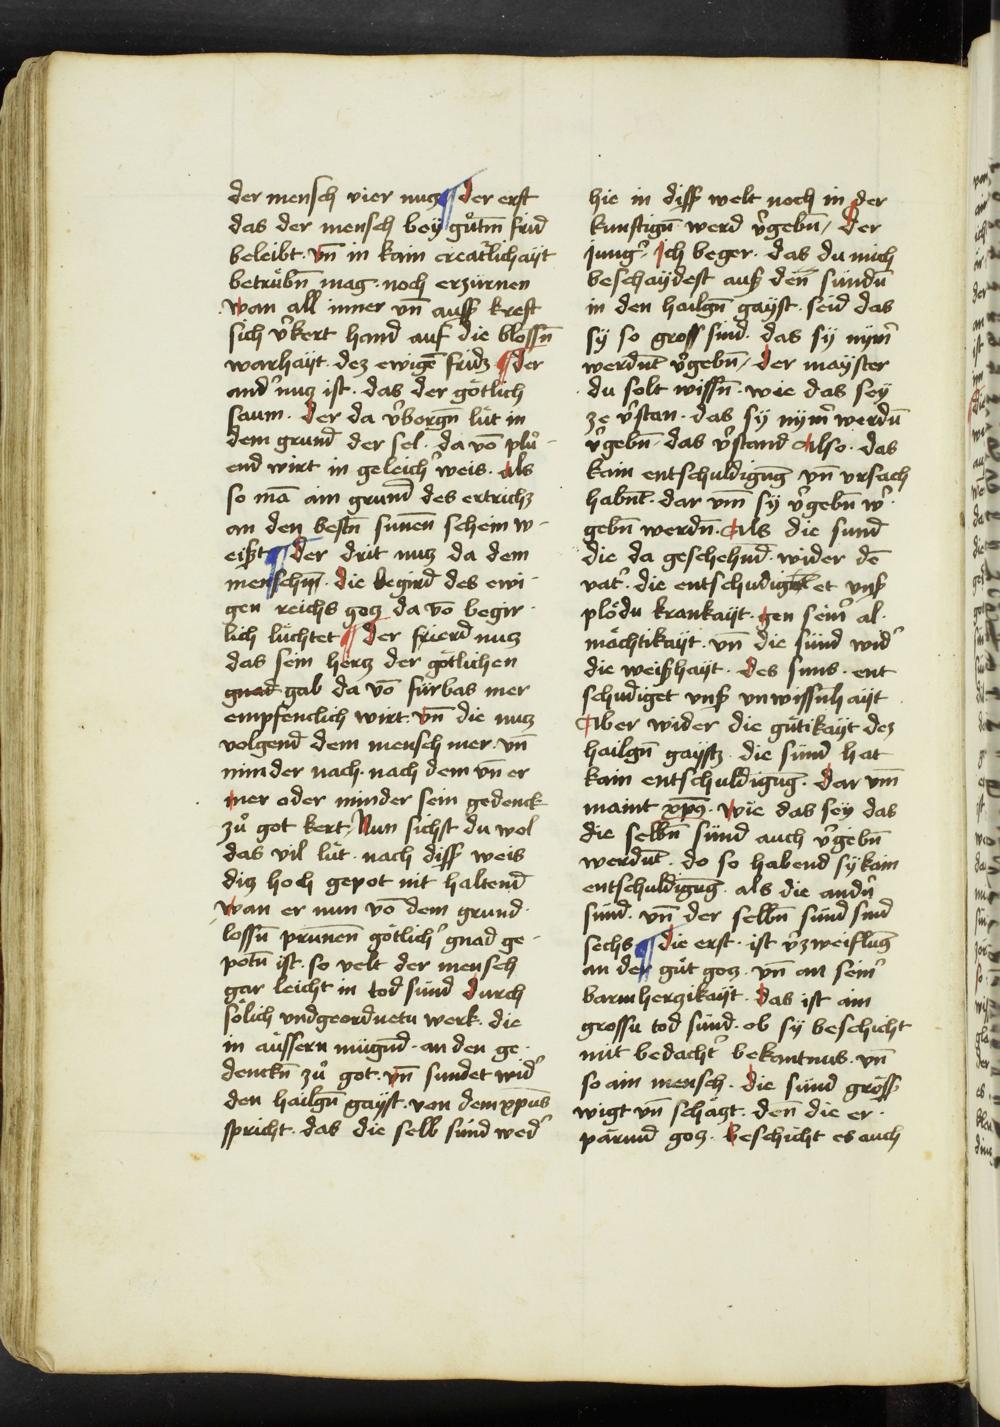 der mensch vier nucz ¶ der erst
das der mensch bey gůtm̄ frid
beleibt. vn̄ in kain creatˀlichaÿt
betrübn̄ mag. noch erzürnen
wan all inner vn̄ auss kreft
sich vˀkert hand auf die blossn̄
warhaÿt. dez ewigē fridz ¶ der
andˀ nucz ist. das der götlich
saum. der da vˀborgn̄ lüt in
dem grund der sel. da vō plů-
end wirt in geleichˀ weis. als
so mā ain grund des ertrichz
an den bestn̄ sunen̄ schein w-
eißt ¶ der drit nucz da dem
menschn̄. die begird des ewi-
gen reichs gocz da vō begir-
lich lüchtet ¶ der frierd nucz
das sein hercz der götlichen
gnad gab da vō fürbas mer
empfenclich wirt. vn̄ die nucz
volgend dem mensch mer. vn̄
minder nach. nach dem vn̄ er
mer oder minder sein gedenck
zů got kert. Nun sichst du wol
das vil lüt. nach diss weis
dicz hoch gepot nit haltend
wan er nun vō dem grund-
lossn̄ prunnen̄ götlichˀ gnad ge-
potn̄ ist. so velt der mensch
gar leicht in tod sünd durch
sölich vndgeordnetn werk. die
in äussern mügnd̄. an den ge-
denckn̄ zů got. vn̄ sundet widˀ
den hailgn̄ gaÿst. von dem xp̄us
spricht. das die selb sünd wedˀ
hie in diss welt noch in der
kunftign̄ werd vˀgebn̄ / der
jungˀ. Ich beger. das du mich
beschaÿdest auß den̄ sündn̄
in den hailgn̄ gaÿst. seid das
sy so gross sind. das sy nym̄
werdnt̄ vˀgebn̄ / der mayster
du solt wissn̄. wie das sey
ze vˀstan. das sy nym̄ werdn̄
vˀgebn̄. das vˀstand Also. das
kain entschuldigūg vn̄ vrsach
habnt̄. dar vm̄ sy vˀgebn̄ wˀ-
gebn̄ werdn̄. Als die sünd
die da geschehnd̄ wider dē
vatˀ. die entschudiget vnß
plödn krankaÿt. gen seimˀ al-
mächtikaÿt. vn̄ die sünd widˀ
die weißhaÿt. des suns. ent
schudiget vnß vnwissn̄haÿt
Aber wider die gütikaÿt dez
hailgn̄ gaystz. die sünd hat
kain entschuldigūg. dar vm̄
maint xp̄us. wie das sey das
die selbn̄ sünd auch vˀgebn̄
werdnt̄. do so habend sy kain
entschuldigūg. als die andn̄
sünd. vn̄ der selbn̄ sünd sind
sechs ¶ die erst. ist vˀzweiflūg
an der güt gocz. vn̄ an seimˀ
barmherczikaÿt. das ist ain
grossn tod sünd. ob sy beschicht
mit bedachtˀ bekantnus. vn̄
so ain mensch. die sünd gröss
wigt vn̄ schäczt. den̄ die er-
pärmd gocz. beschicht es auch